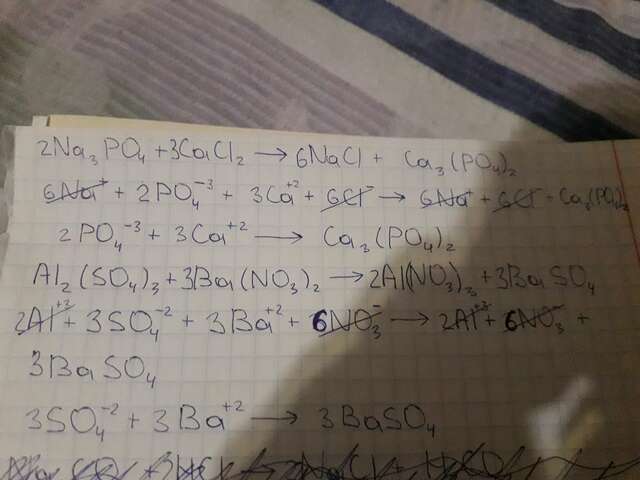 2Na₃PO₄ + 3CaCl₂ → 6NaCl + Ca₃(PO₄)₂
6Na⁺ + 2PO₄⁻³ + 3Ca⁺² + 6Cl⁻ → 6Na⁺ + 6Cl⁻ + Ca₃(PO₄)₂
2PO₄⁻³ + 3Ca⁺² → Ca₃(PO₄)₂
Al₂(SO₄)₃ + 3Ba(NO₃)₂ → 2Al(NO₃)₃ + 3BaSO₄
2Al⁺² + 3SO₄⁻² + 3Ba⁺² + 6NO₃⁻ → 2Al⁺³ + 6NO₃⁻ +
3BaSO₄
3SO₄⁻² + 3Ba⁺² → 3BaSO₄